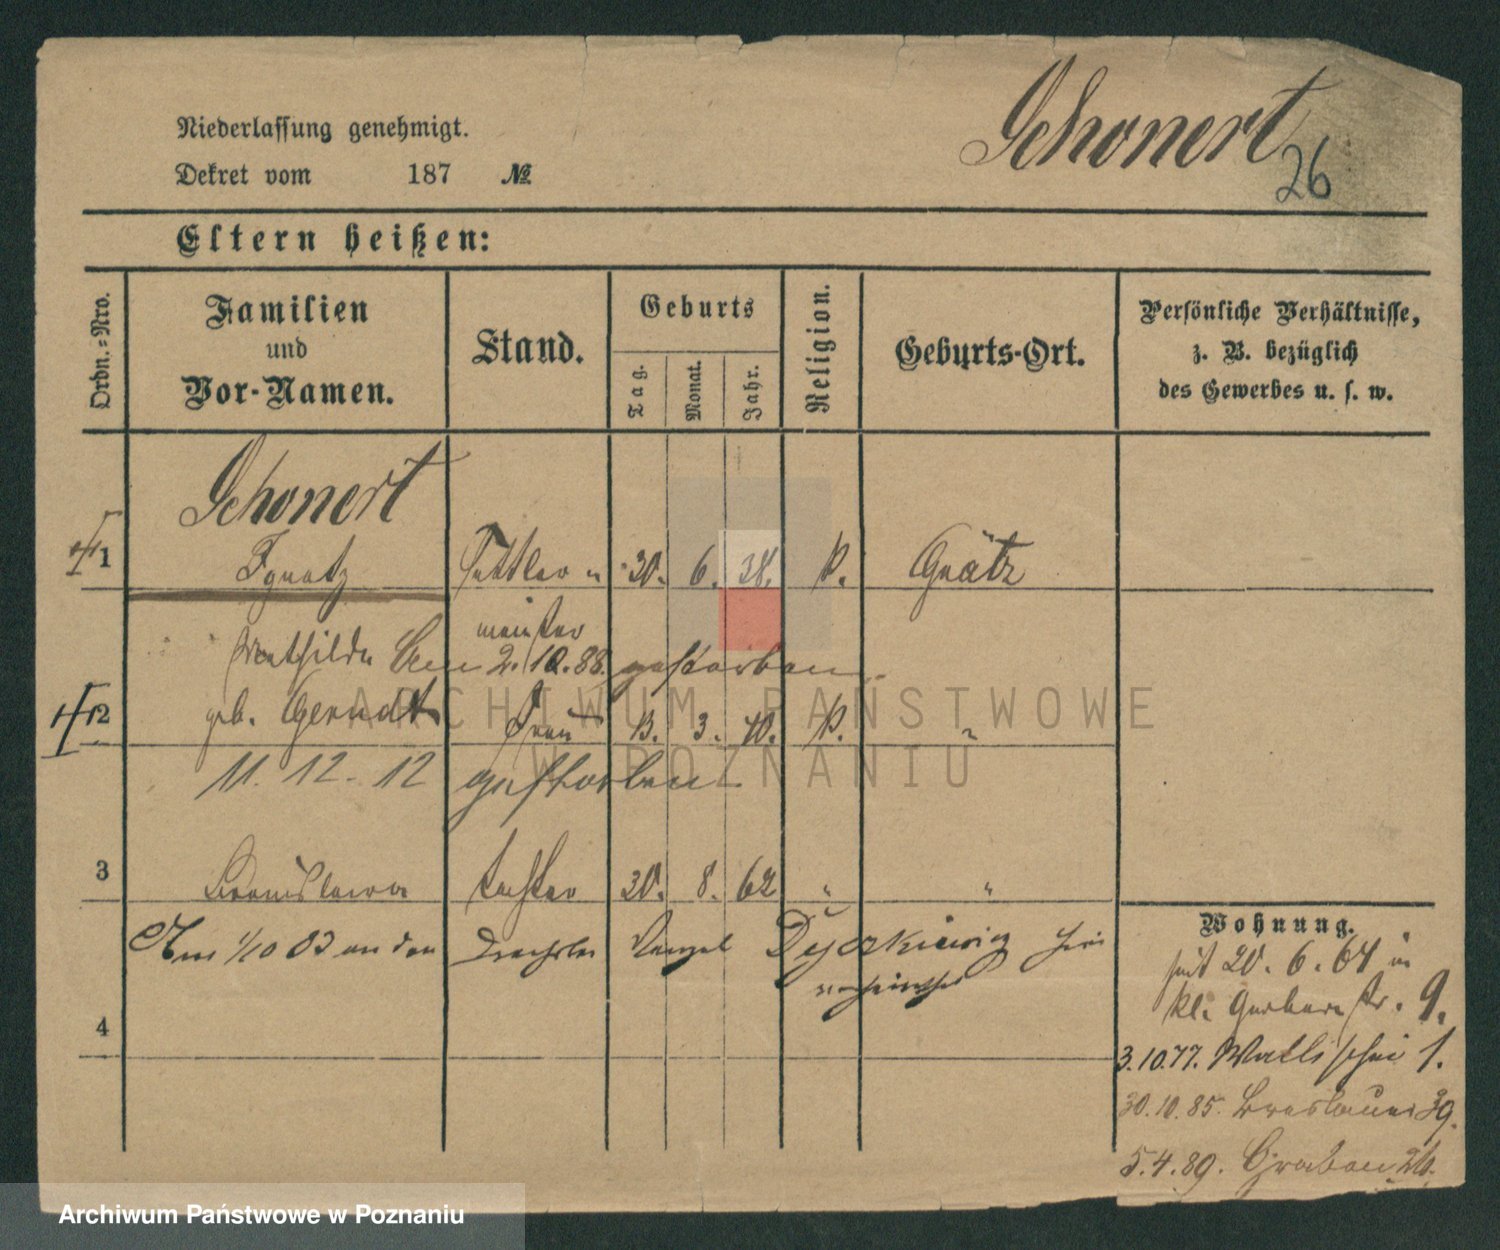 Schonert
26
Niederlassung genehmigt.
Dekret vom 187 №
Eltern heißen:
Ordn.=Nro.
Familien
und
Vor-Namen.
Stand.
Geburts
Tag.
Monat.
Jahr.
Religion.
Geburts-Ort.
Persönliche Verhältnisse,
z. B. bezüglich
des Gewerbes u. s. w.
Schonert
1 Ignatz Sattler 30. 6. 38. k. Grätz
meister
Mathilde Am 2.10.88. gestorben
2 geb. Gerndt Frau 13. 3. 40. k. "
11. 12. 12 gestorben
3 Bronislawa Tochter 30. 8. 62 " "
Am 1/10 83 an den Drechsler Dyczkiewicz hier
verheirathet
4
Wohnung.
seit 20. 6. 64 in
kl. Gerberstr. 9.
3.10.77. Wallischei 1.
30.10.85. Breslauer 39.
5.4.89. Graben 26.
ARCHIWUM PAŃSTWOWE
W POZNANIU
Archiwum Państwowe w Poznaniu